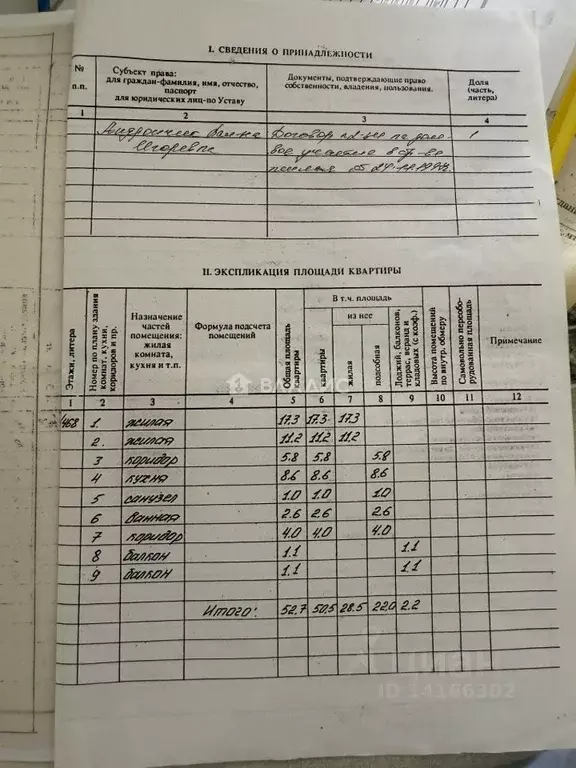 I. СВЕДЕНИЯ О ПРИНАДЛЕЖНОСТИ
№ п.п. Субъект права: для граждан-фамилия, имя, отчество, паспорт для юридических лиц-по Уставу Документы, подтверждающие право собственности, владения, пользования. Доля (часть, литера)
1 2 3 4
Игоревна
Договор
II. ЭКСПЛИКАЦИЯ ПЛОЩАДИ КВАРТИРЫ
В т.ч. площадь
из нее
Этажи, литера Номер по плану здания комнат, кухни, коридоров и пр. Назначение частей помещения: жилая комната, кухня и т.п. Формула подсчета помещений Общая площадь квартиры квартиры жилая подсобная Лоджий, балконов, террас, веранд и кладовых (с коэф.) Высота помещений по внутр. обмеру Самовольно переоборудованная площадь Примечание
1 2 3 4 5 6 7 8 9 10 11 12
468 1. жилая 17.3 17.3 17.3
2. жилая 11.2 11.2 11.2
3 коридор 5.8 5.8 5.8
4 кухня 8.6 8.6 8.6
5 санузел 1.0 1.0 1.0
6 ванная 2.6 2.6 2.6
7 коридор 4.0 4.0 4.0
8 балкон 1.1 1.1
9 балкон 1.1 1.1
Итого: 52.7 50.5 28.5 22.0 2.2
циан
ID 14166302